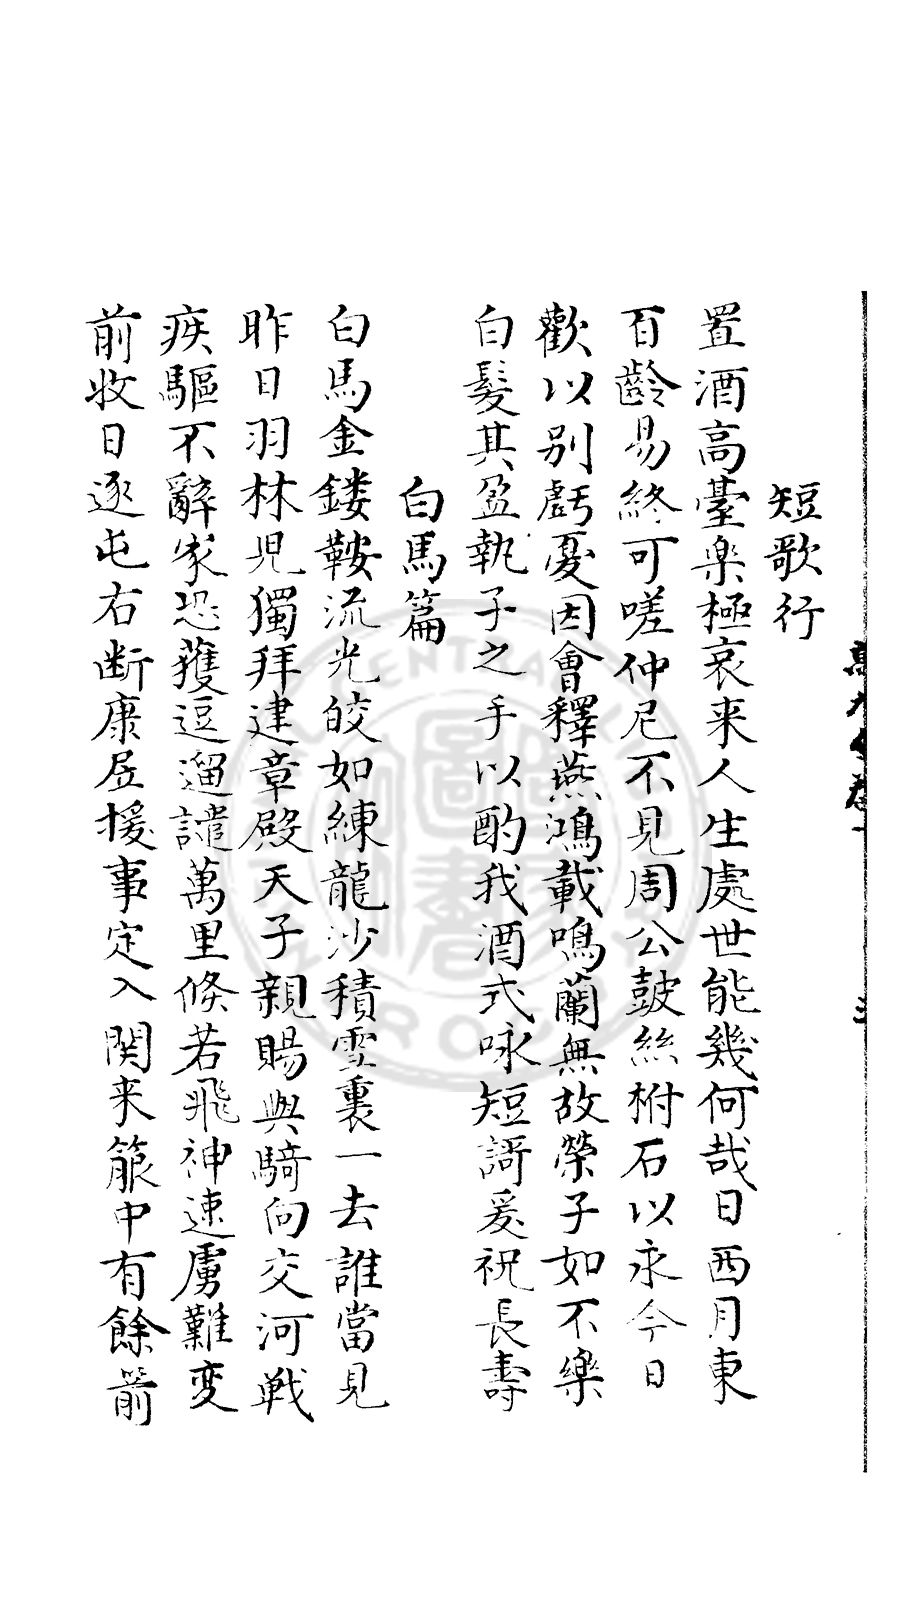 短歌行
置酒高臺楽極哀来人生處世能幾何哉日西月東
百齡易終可嗟仲尼不見周公鼓絲柎石以永今日
歡以别虧憂因會釋燕鴻載鳴蘭無故榮子如不樂
白髮其盈執子之手以酌我酒式咏短謌爰祝長壽
白馬篇
白馬金鏤鞍流光皎如練龍沙積雪裏一去誰當見
昨日羽林児獨拜建章殿天子親賜與騎向交河戦
疾驅不辭家恐蒦逗遛譴萬里倏若飛神速虜難変
前收日逐屯右断康居援事定入関来箙中有餘箭
CENTRAL
圖書